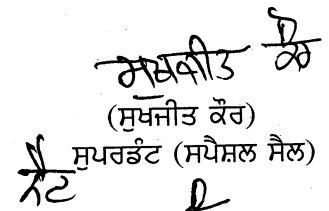 ਸੁਖਜੀਤ ਕੌਰ
(ਸੁਖਜੀਤ ਕੌਰ)
ਸੁਪਰਡੰਟ (ਸਪੈਸ਼ਲ ਸੈੱਲ)